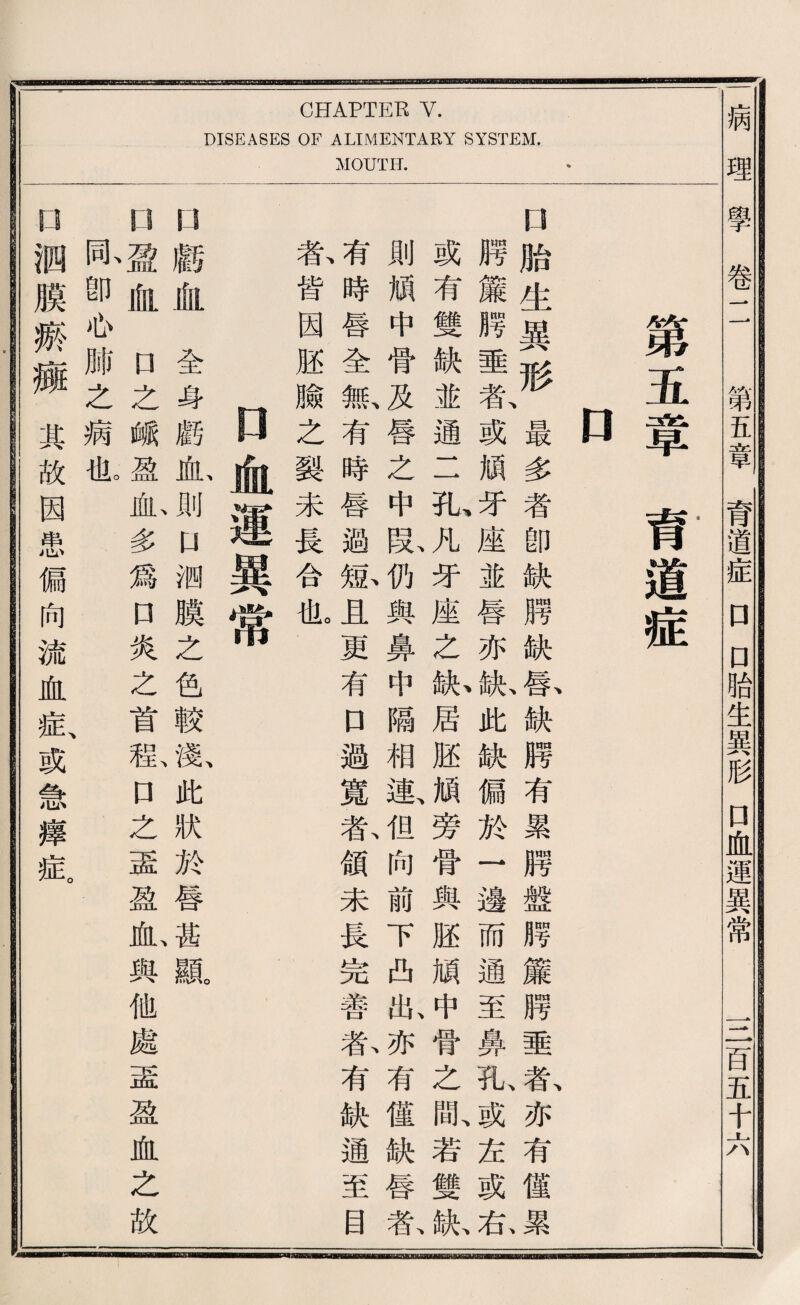 CHAPTER V.
DISEASES OF ALIMENTARY SYSTEM.
MOUTH.
病理學 卷二 第五章 育道症 口 口胎生異形 口血運異常 三百五十六
第五章 育道症
口
口胎生異形 最多者卽缺腭缺唇、缺腭有累腭盤腭簾腭垂者、亦有僅累
腭簾腭垂者、或頄牙座並唇亦缺、此缺偏於一邊而通至鼻孔、或左或右、
或有雙缺並通二孔、凡牙座之缺、居胚頄旁骨與胚頄中骨之間、若雙缺、
則頄中骨及唇之中段、仍與鼻中隔相連、但向前下凸出、亦有僅缺唇者、
有時唇全無、有時唇過短、且更有口過寬者、頷未長完善者、有缺通至目
者、皆因胚臉之裂未長合也。
口血運異常
口虧血 全身虧血、則口泗膜之色較淺、此狀於唇甚顯。
口盈血 口之衇盈血、多爲口炎之首程、口之盓盈血、與他處盓盈血之故
同、卽心肺之病也。
口泗膜瘀癍 其故因患偏向流血症、或急瘴症。